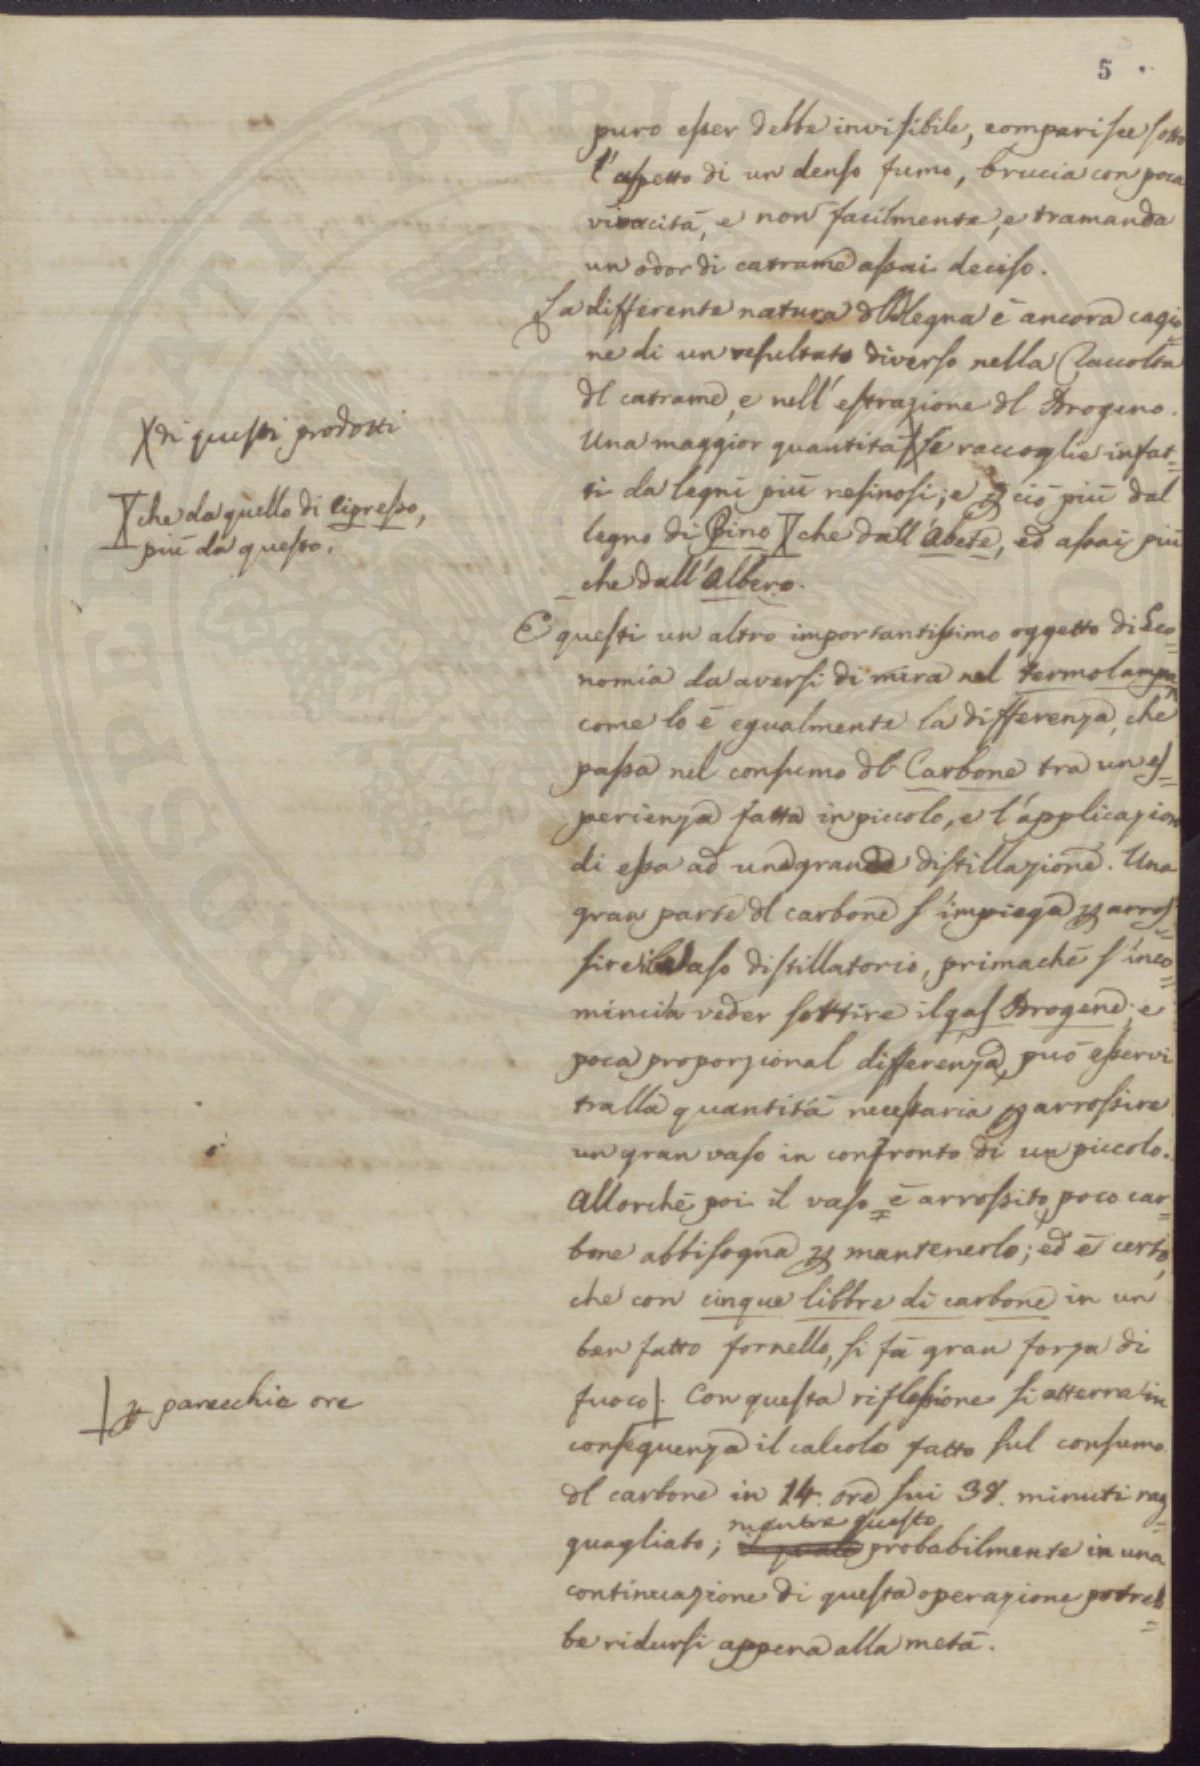 5
puro esser debbe invisibile, comparisce sotto
l'aspetto di un denso fumo, brucia con poca
vivacità, e non facilmente, e tramanda
un odor di catrame assai deciso.
La differente natura dl legna è ancora cagio=
ne di un resultato diverso nella Raccolta
dl catrame, e nell'estrazione dl Idrogeno.
Una maggior quantità X se raccoglie infat=
X di questi prodotti
ti da legni più resinosi; e p ciò più dal
legno di Pino X che dall'Abete, ed assai più
X che da quello di cipresso,
più da questo.
che dall'Albero.
È questi un altro importantissimo oggetto di Eco=
nomia da aversi di mira nel termolampa,
come lo è egualmente la differenza, che
passa nel consumo dl Carbone tra un es=
perienza fatta in piccolo, e l'applicazione
di essa ad una grande distillazione. Una
gran parte dl carbone s'impiega p arros=
sire il vaso distillatorio, primachè s'inco=
minci a veder sortire il gas Idrogene; e
poca proporzional differenza può esservi
tralla quantità necessaria p arrossire
un gran vaso in confronto di un piccolo.
Allorchè poi il vaso è arrossito, poco car=
bone abbisogna p mantenerlo; ed è certo,
che con cinque libbre di carbone in un
ben fatto fornello, si fà gran forza di
fuoco |. Con questa riflessione si atterra in
| p parecchie ore
conseguenza il calcolo fatto sul consumo
dl carbone in 14. ore sui 38. minuti rag=
mentre questo
quagliato; il quale probabilmente in una
continuazione di questa operazione potreb=
be ridursi appena alla metà.